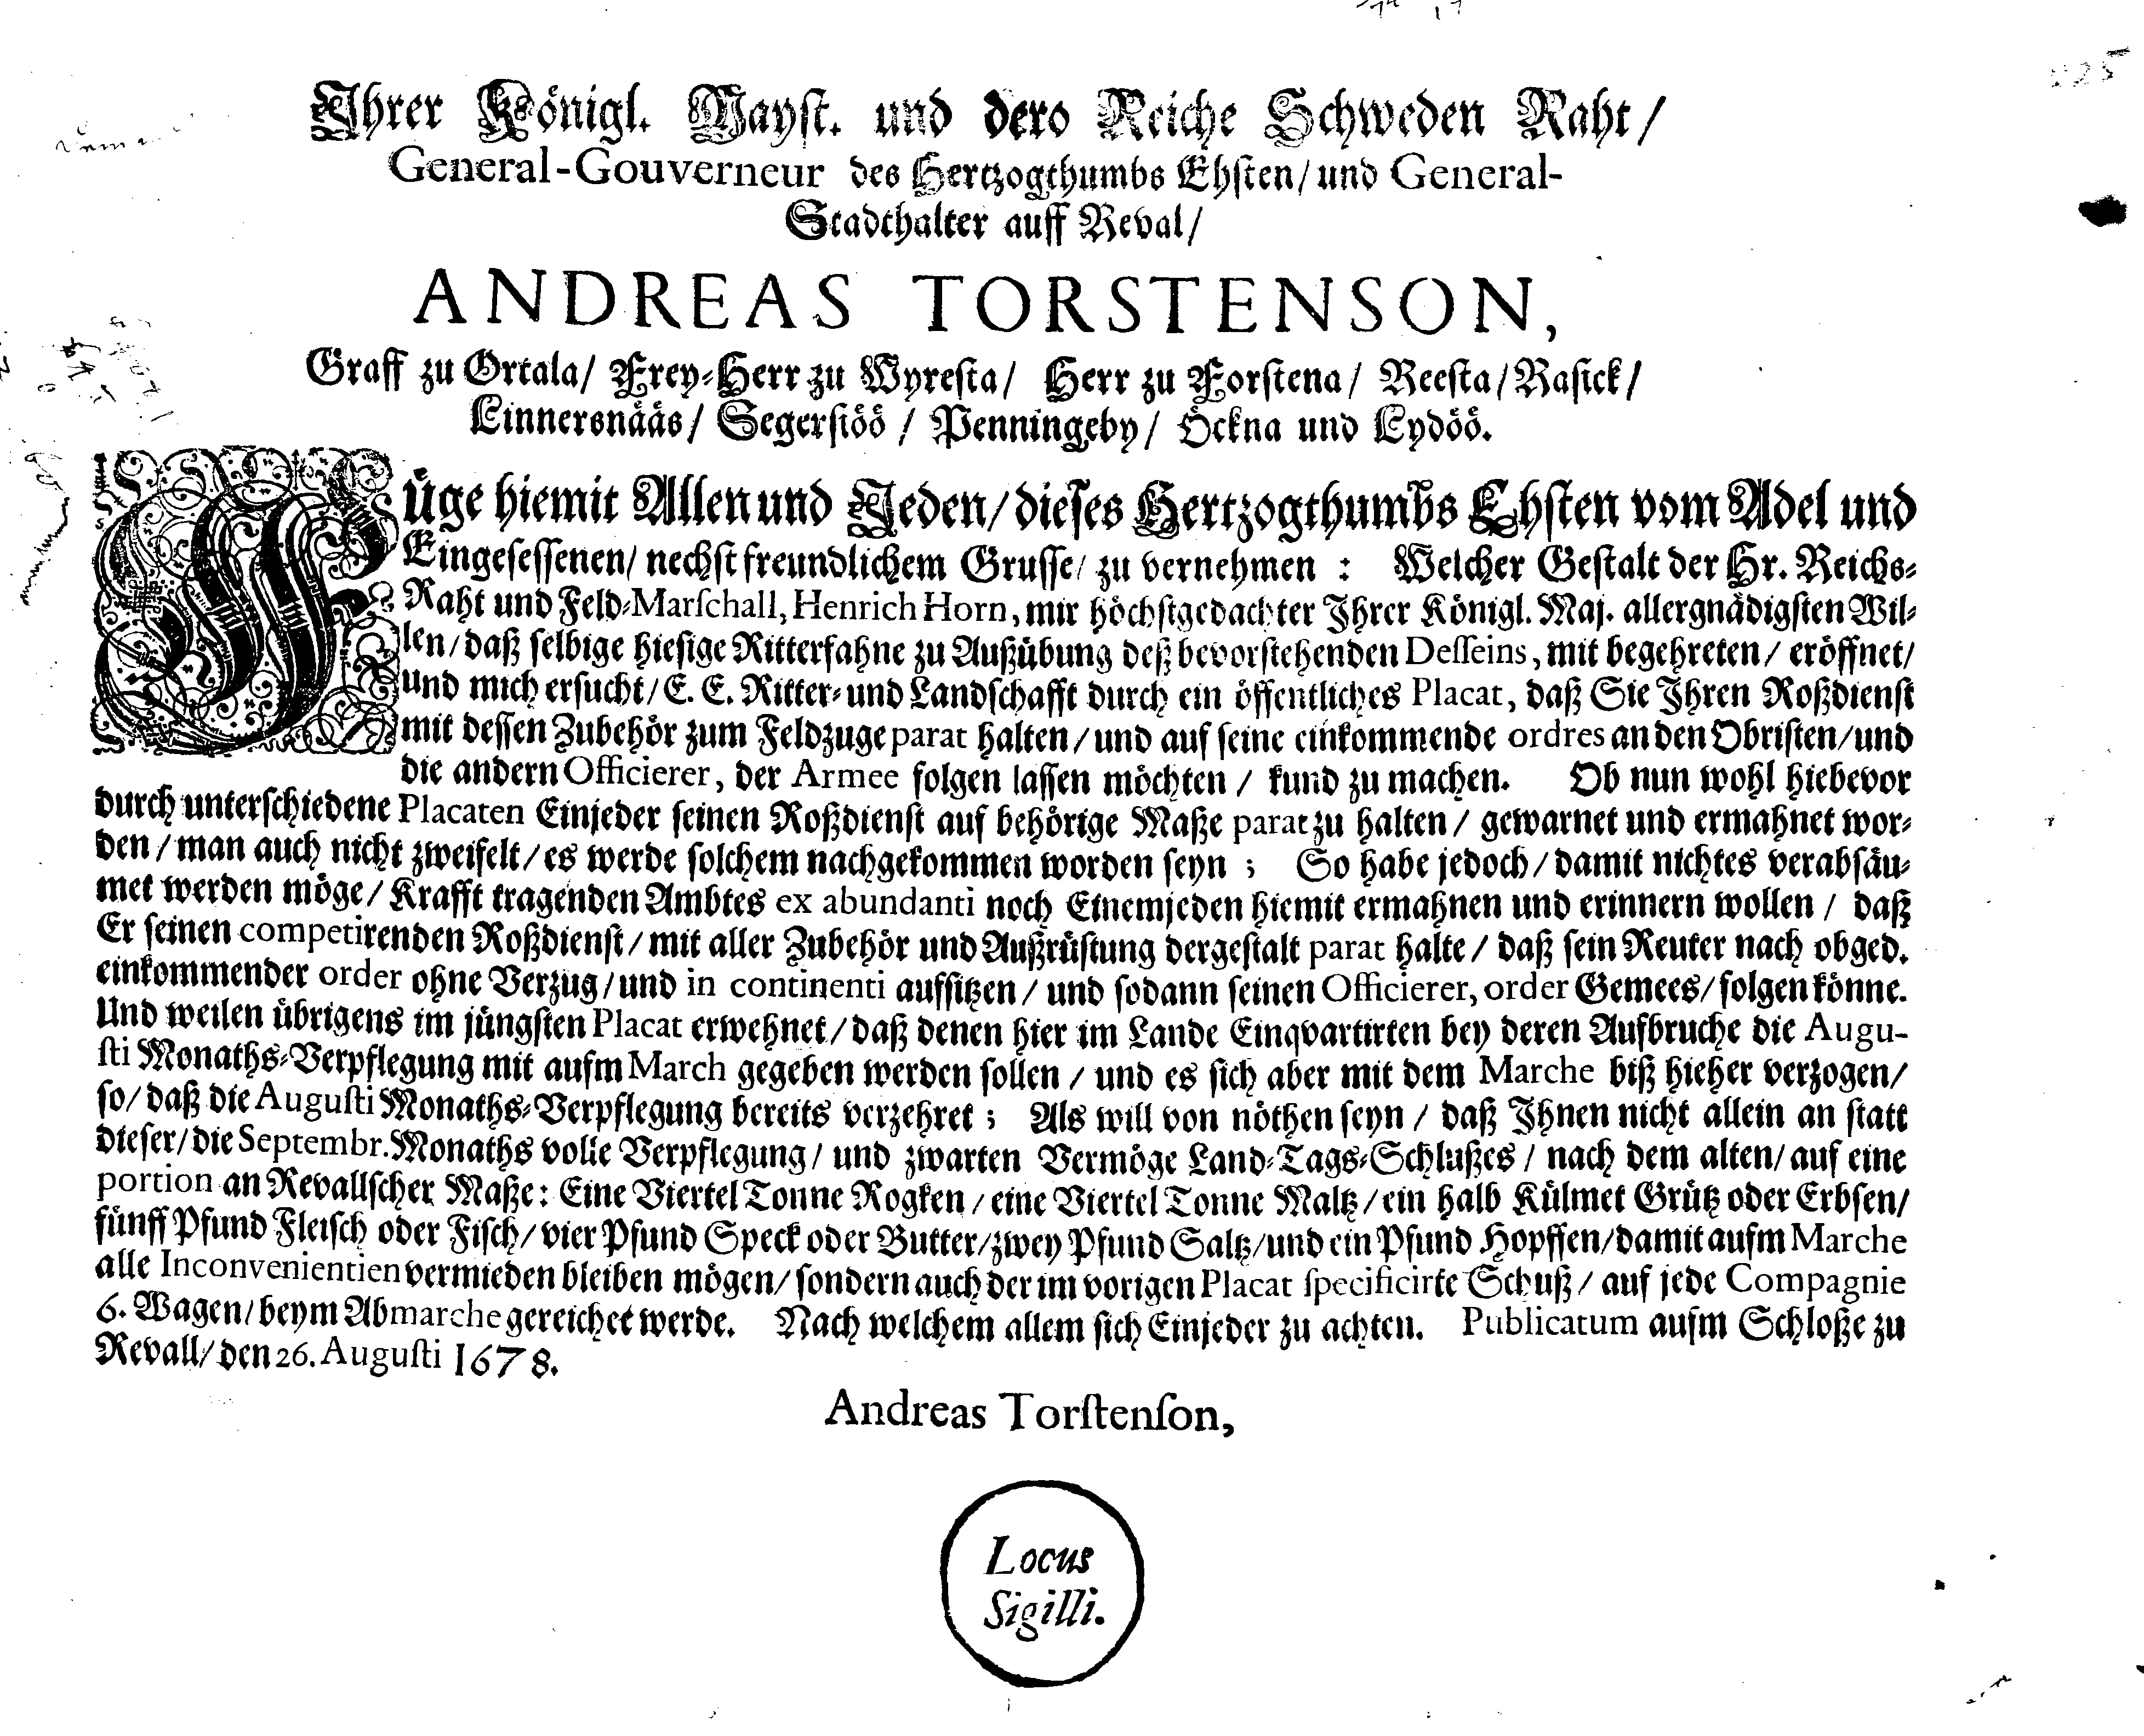 Ihrer Königl. Mayst. und dero Reiche Schweden Raht /
General-Gouverneur des Hertzogthumbs Ehsten / und General-
Stadthalter auff Reval /
ANDREAS TORSTENSON,
Graff zu Ortala / Frey-Herr zu Wyresta / Herr zu Forstena / Reesta / Rasick /
Linnersnääs / Segersiöö / Penningeby / Öckna und Lydöö.
Füge hiemit Allen und Jeden / dieses Hertzogthumbs Ehsten vom Adel und
Eingesessenen / nechst freundlichem Grusse / zu vernehmen : Welcher Gestalt der Hr. Reichs-
Raht und Feld-Marschall, Henrich Horn, mir höchstgedachter Ihrer Königl. Maj. allergnädigsten Wil-
len / daß selbige hiesige Ritterfahne zu Außübung deß bevorstehenden Desseins, mit begehreten / eröffnet /
und mich ersucht / E. E. Ritter- und Landschafft durch ein öffentliches Placat, daß Sie Ihren Roßdienst
mit dessen Zubehör zum Feldzuge parat halten / und auf seine einkommende ordres an den Obristen / und
die andern Officierer, der Armee folgen lassen möchten / kund zu machen. Ob nun wohl hiebevor
durch unterschiedene Placaten Einjeder seinen Roßdienst auf behörige Maße parat zu halten / gewarnet und ermahnet wor-
den / man auch nicht zweifelt / es werde solchem nachgekommen worden seyn ; So habe jedoch / damit nichtes verabsäu-
met werden möge / Krafft tragenden Ambtes ex abundanti noch Einemjeden hiemit ermahnen und erinnern wollen / daß
Er seinen competirenden Roßdienst / mit aller Zubehör und Außrüstung dergestalt parat halte / daß sein Reuter nach obged.
einkommender order ohne Verzug / und in continenti aufsitzen / und sodann seinen Officierer, order Gemees / folgen könne.
Und weilen übrigens im jüngsten Placat erwehnet / daß denen hier im Lande Einqvartirten bey deren Aufbruche die Augu-
sti Monaths-Verpflegung mit aufm March gegeben werden sollen / und es sich aber mit dem Marche biß hieher verzogen /
so / daß die Augusti Monaths-Verpflegung bereits verzehret ; Als will von nöthen seyn / daß Ihnen nicht allein an statt
dieser / die Septembr. Monaths volle Verpflegung / und zwarten Vermöge Land-Tags-Schlußes / nach dem alten / auf eine
portion an Revallscher Maße : Eine Viertel Tonne Rogken / eine Viertel Tonne Maltz / ein halb Külmet Grütz oder Erbsen /
fünff Pfund Fleisch oder Fisch / vier Pfund Speck oder Butter / zwey Pfund Saltz / und ein Pfund Hopffen / damit aufm Marche
alle Inconvenientien vermieden bleiben mögen / sondern auch der im vorigen Placat specificirte Schuß / auf jede Compagnie
6. Wagen / beym Abmarche gereichet werde. Nach welchem allem sich Einjeder zu achten. Publicatum aufm Schloße zu
Revall / den 26. Augusti 1678.
Andreas Torstenson,
Locus
Sigilli.